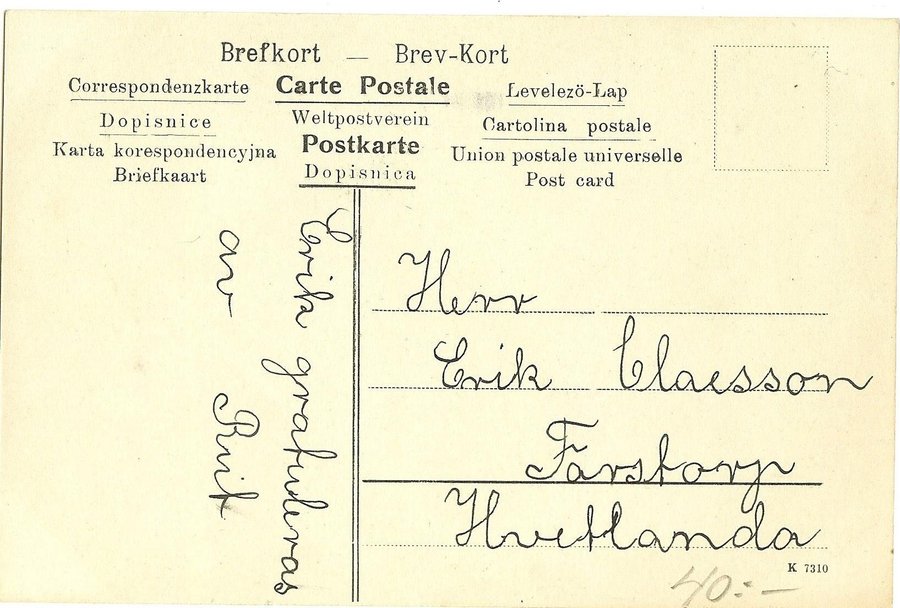 Brefkort — Brev-Kort
Correspondenzkarte Carte Postale Levelezö-Lap
Dopisnice Weltpostverein Cartolina postale
Karta korespondencyjna Postkarte Union postale universelle
Briefkaart Dopisnica Post card
Erik gratuleras
av
Herr
Erik Claesson
Farstorp
Hvetlanda
K 7310
40:-